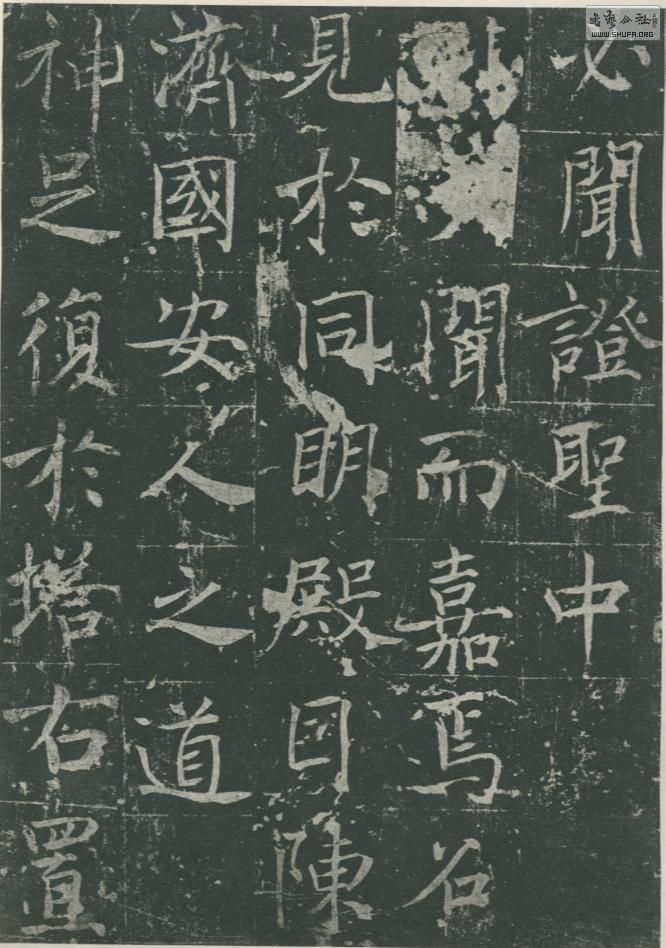 必聞證聖中
聞而嘉焉召
見於同眀殿因陳
濟國安人之道
神足復於塔右置
WWW.SHUFA.ORG